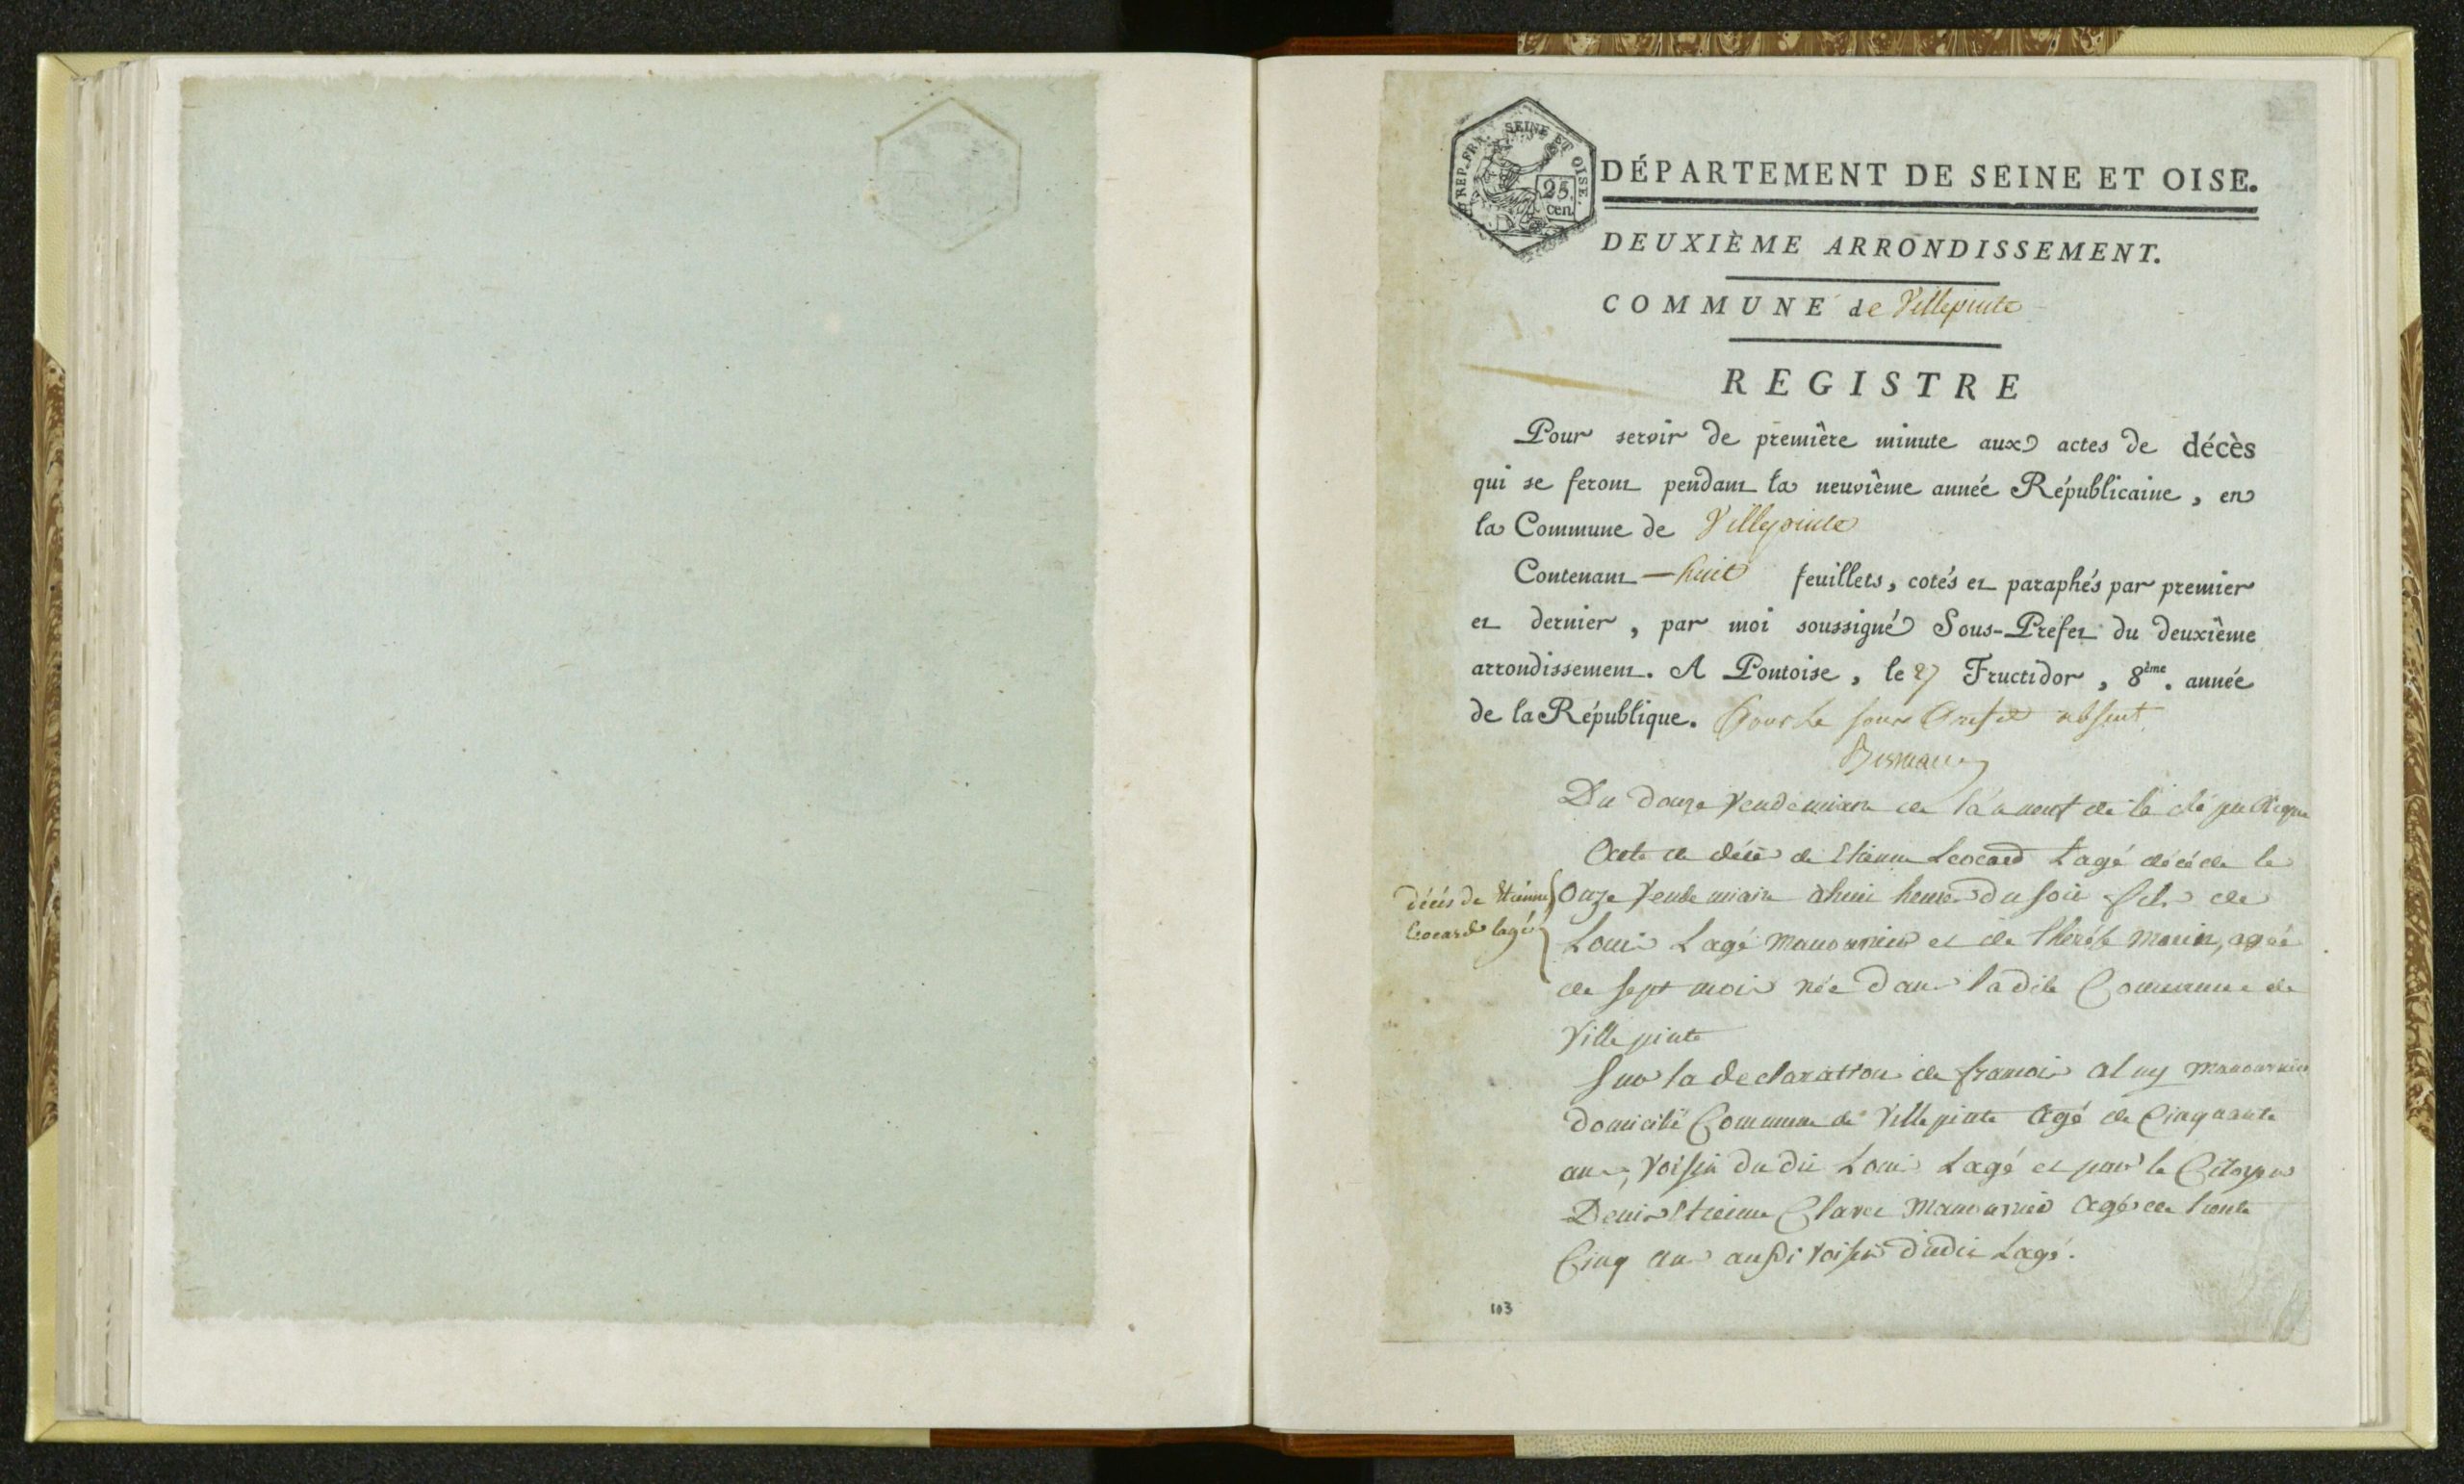 REP. FRA. SEINE ET OISE.
25.
cen
DÉPARTEMENT DE SEINE ET OISE.
DEUXIÈME ARRONDISSEMENT.
COMMUNE de Villepinte
REGISTRE
Pour servir de première minute aux actes de décès
qui se feront pendant la neuvième année Républicaine, en
la Commune de Villepinte
Contenant — huit feuillets, cotés et paraphés par premier
et dernier, par moi soussigné Sous-Prefet du deuxième
arrondissement. A Pontoise, le 27 Fructidor, 8ème. année
de la République. Pour le sous Prefet absent
Du douze Vendemiaire de l'an neuf de la République
Acte de décès de Etienne Leocard Lagé décédé le
décès de Etienne
Leocard lagé
Onze Vendemiaire a huit heures du soir fils de
Louis Lagé manouvrier et de Therese Morin, agée
de sept mois née dans ladite Commune de
Villepinte
Sur la declaration de francois manouvrier
domicilié Commune de Villepinte agé de Cinquante
ans, voisin du dit Louis Lagé et par le Citoyen
Denis Etienne manouvrier agé de trente
Cinq ans aussi voisin dudit Lagé.
103